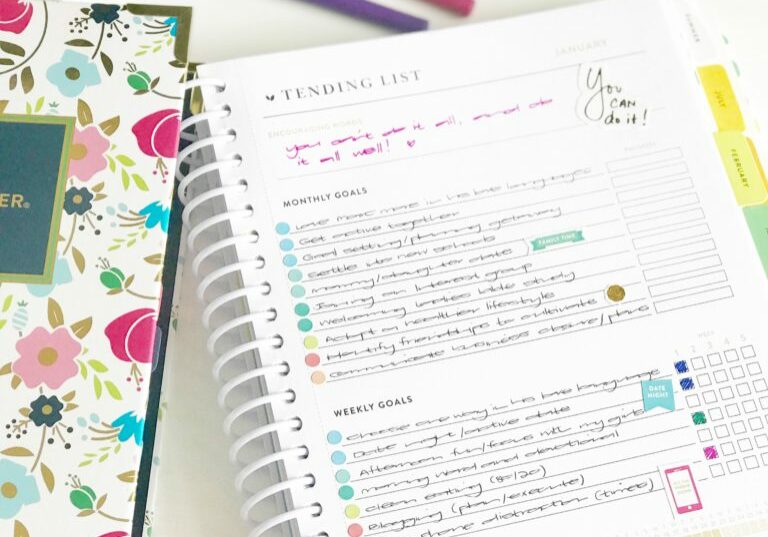 JANUARY
TENDING LIST
You
CAN
do it!
ENCOURAGING WORDS
you can't do it all, and do
it all well!
MONTHLY GOALS
Love Marc more in his love languages
Get active together
Goal setting/planning getaway
Settle into new schools
FAMILY TIME
mommy/daughter date
Joining an interest group
Welcoming ladies bible study
Adapt a healthier lifestyle
Identify friendships to cultivate
Communicate business closure/plans
WEEK
1 2 3 4 5
WEEKLY GOALS
Choose one way in his love language
Date night/active date
DATE
NIGHT
Afternoon fun/focus with my girls
morning word and devotional
clean eating (80/20)
Blogging (plan/execute)
phone distraction (times)
ER®
SUMMER
JULY
FEBRUARY